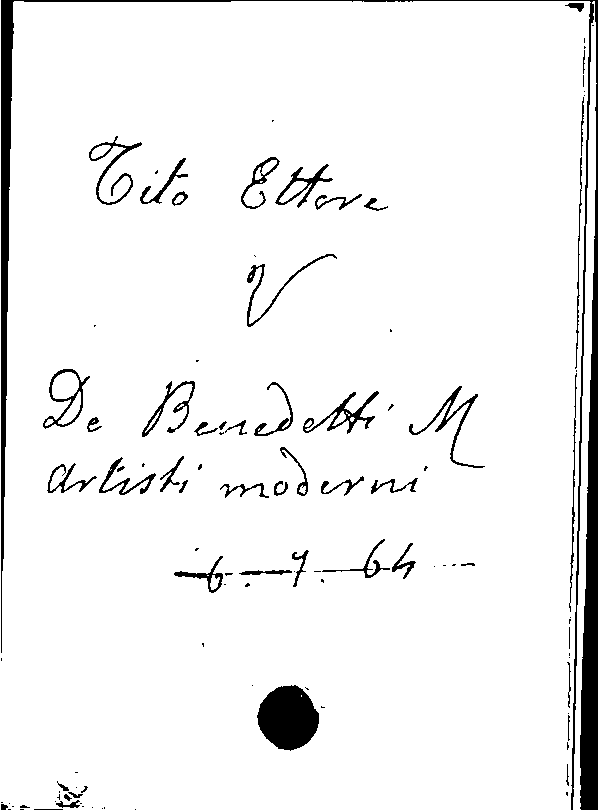 Tito Ettore
V
De Benedetti M
Artisti moderni
6. 7. 64